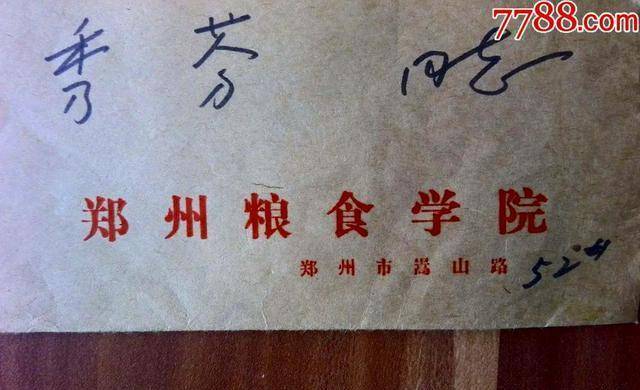 7788.com
秀芬 同志
郑州粮食学院
郑州市嵩山路 52号